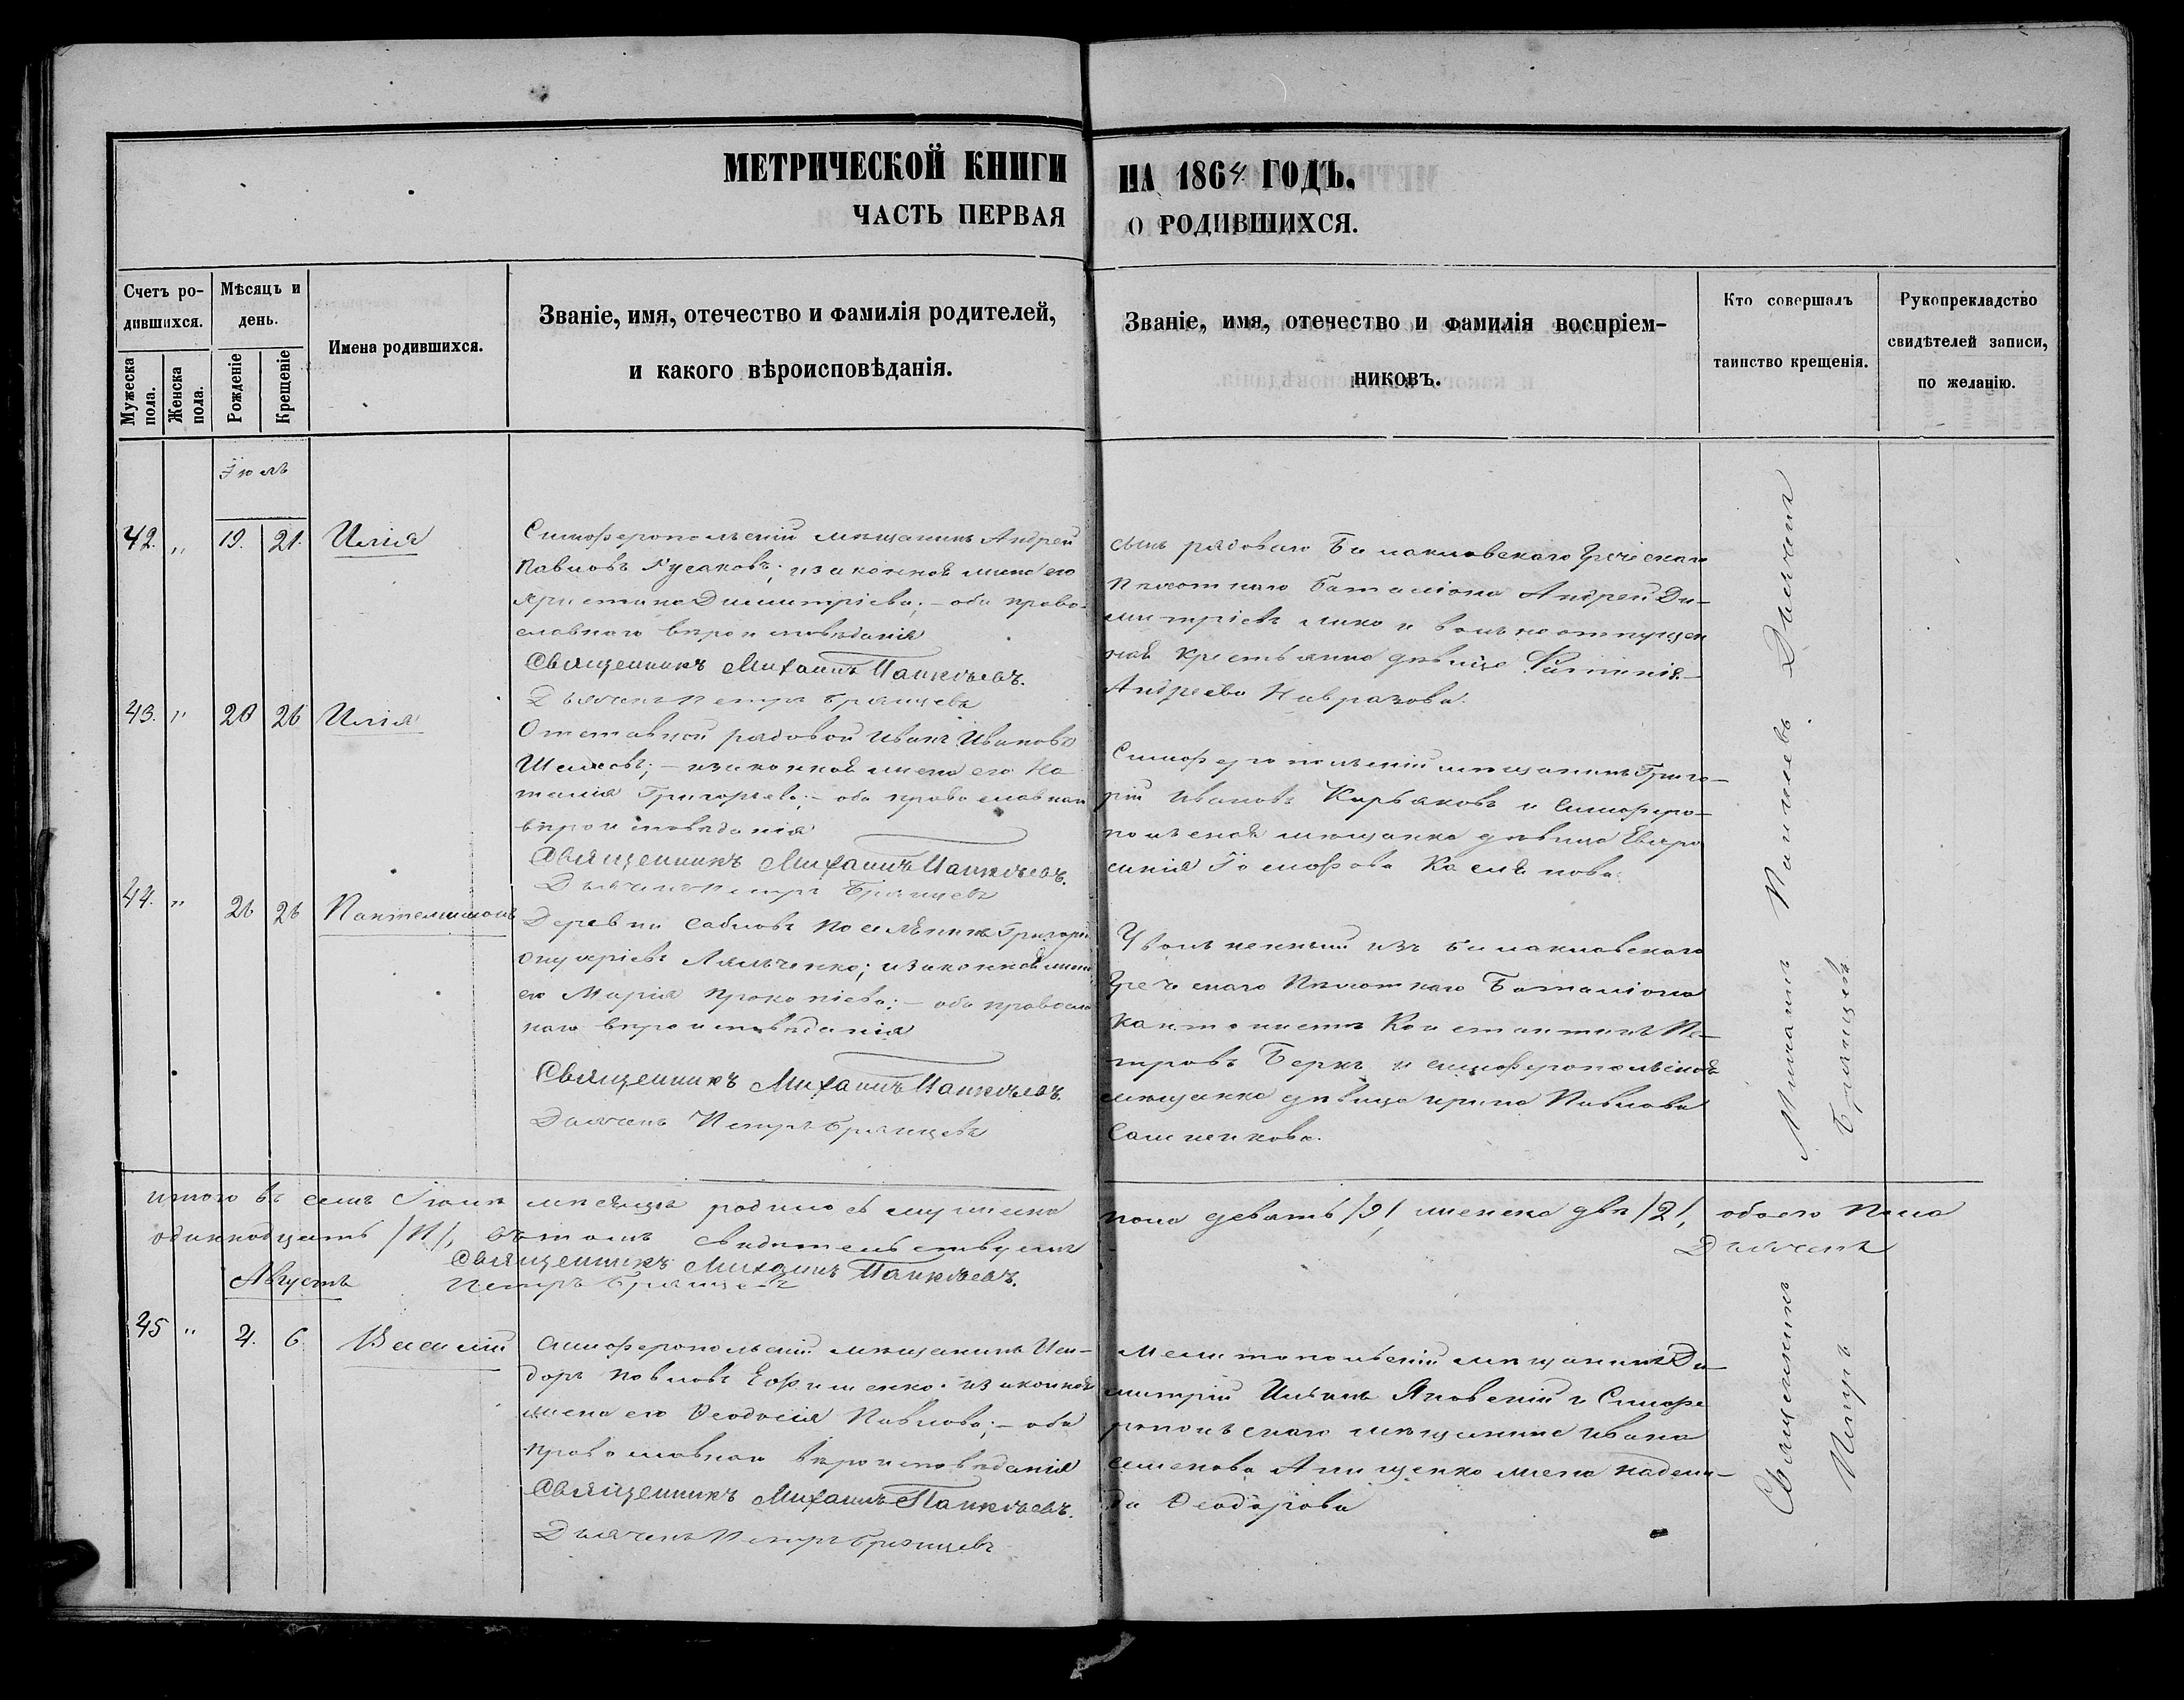 МЕТРИЧЕСКОЙ КНИГИ НА 1864 ГОДЪ.
ЧАСТЬ ПЕРВАЯ О РОДИВШИХСЯ.
Счетъ ро-
дившихся.
Мужеска
пола.
Женска
пола.
Мѣсяцъ и
день.
Рожденіе
Крещеніе
Имена родившихся.
Званіе, имя, отечество и фамилія родителей,
и какого вѣроисповѣданія.
Званіе, имя, отечество и фамилія воспріем-
никовъ.
Кто совершалъ
таинство крещенія.
Рукопрекладство
свидѣтелей записи,
по желанію.
Іюль
42. " 19. 21. Илія
Симферопольскій мѣщанинъ Андрей
Павловъ Русаковъ; и законная жена его
Христина Димитріева; – оба право-
славнаго вѣроисповѣданія
Священникъ Михаилъ
Дьячекъ Петръ Брянцевъ
сынъ рядоваго Балаклавскаго Греческаго
Пѣхотнаго Баталіона Андрей Ди-
митріевъ и вольноотпущен
ная крестьянка дѣвица
Андреева
43. " 20 26 Илія
Отставной рядовой Иванъ Ивановъ
и законная жена его На
талія Григорьева; – оба православнаго
вѣроисповѣданія
Священникъ Михаилъ
Дьячекъ Петръ Брянцевъ
Симферопольскій мѣщанинъ Григо-
рій Ивановъ Кирьяковъ и Симферо-
польская мѣщанка дѣвица Евфро
синія
44. " 26 26 Пантелимонъ
Деревни Сабловъ поселянинъ Григорій
Онуфріевъ и законная жена
его Марія Прокопіева; – оба православ
наго вѣроисповѣданія
Священникъ Михаилъ
Дьячекъ Петръ Брянцевъ
Уволненный изъ Балаклавскаго
Греческаго Пѣхотнаго Баталіона
кантонистъ Константинъ Пе-
тровъ и симферопольская
мѣщанка дѣвица Ирина Павлова
Итого въ семъ Іюлѣ мѣсяцѣ родилось мужеска пола девять /9/, женска двѣ /2/, обоего пола
одиннадцать /11/, въ томъ свидѣтельствуемъ
Священникъ Михаилъ Дьячекъ
Петръ Брянцевъ
Августъ
45 " 4. 6. Василій
Симферопольскій мѣщанинъ Иси-
доръ Павловъ Ефименко и законная
жена его Ѳеодосія Павлова; – оба
православнаго вѣроисповѣданія
Священникъ Михаилъ
Дьячекъ Петръ Брянцевъ
Мелитопольскій мѣщанинъ Ди-
митрій Ильинъ Яновскій и Симфе
ропольскаго мѣщанина Ивана
Семенова жена Надеж-
да Ѳеодорова
Священникъ Михаилъ Дьячекъ
Петръ Брянцевъ